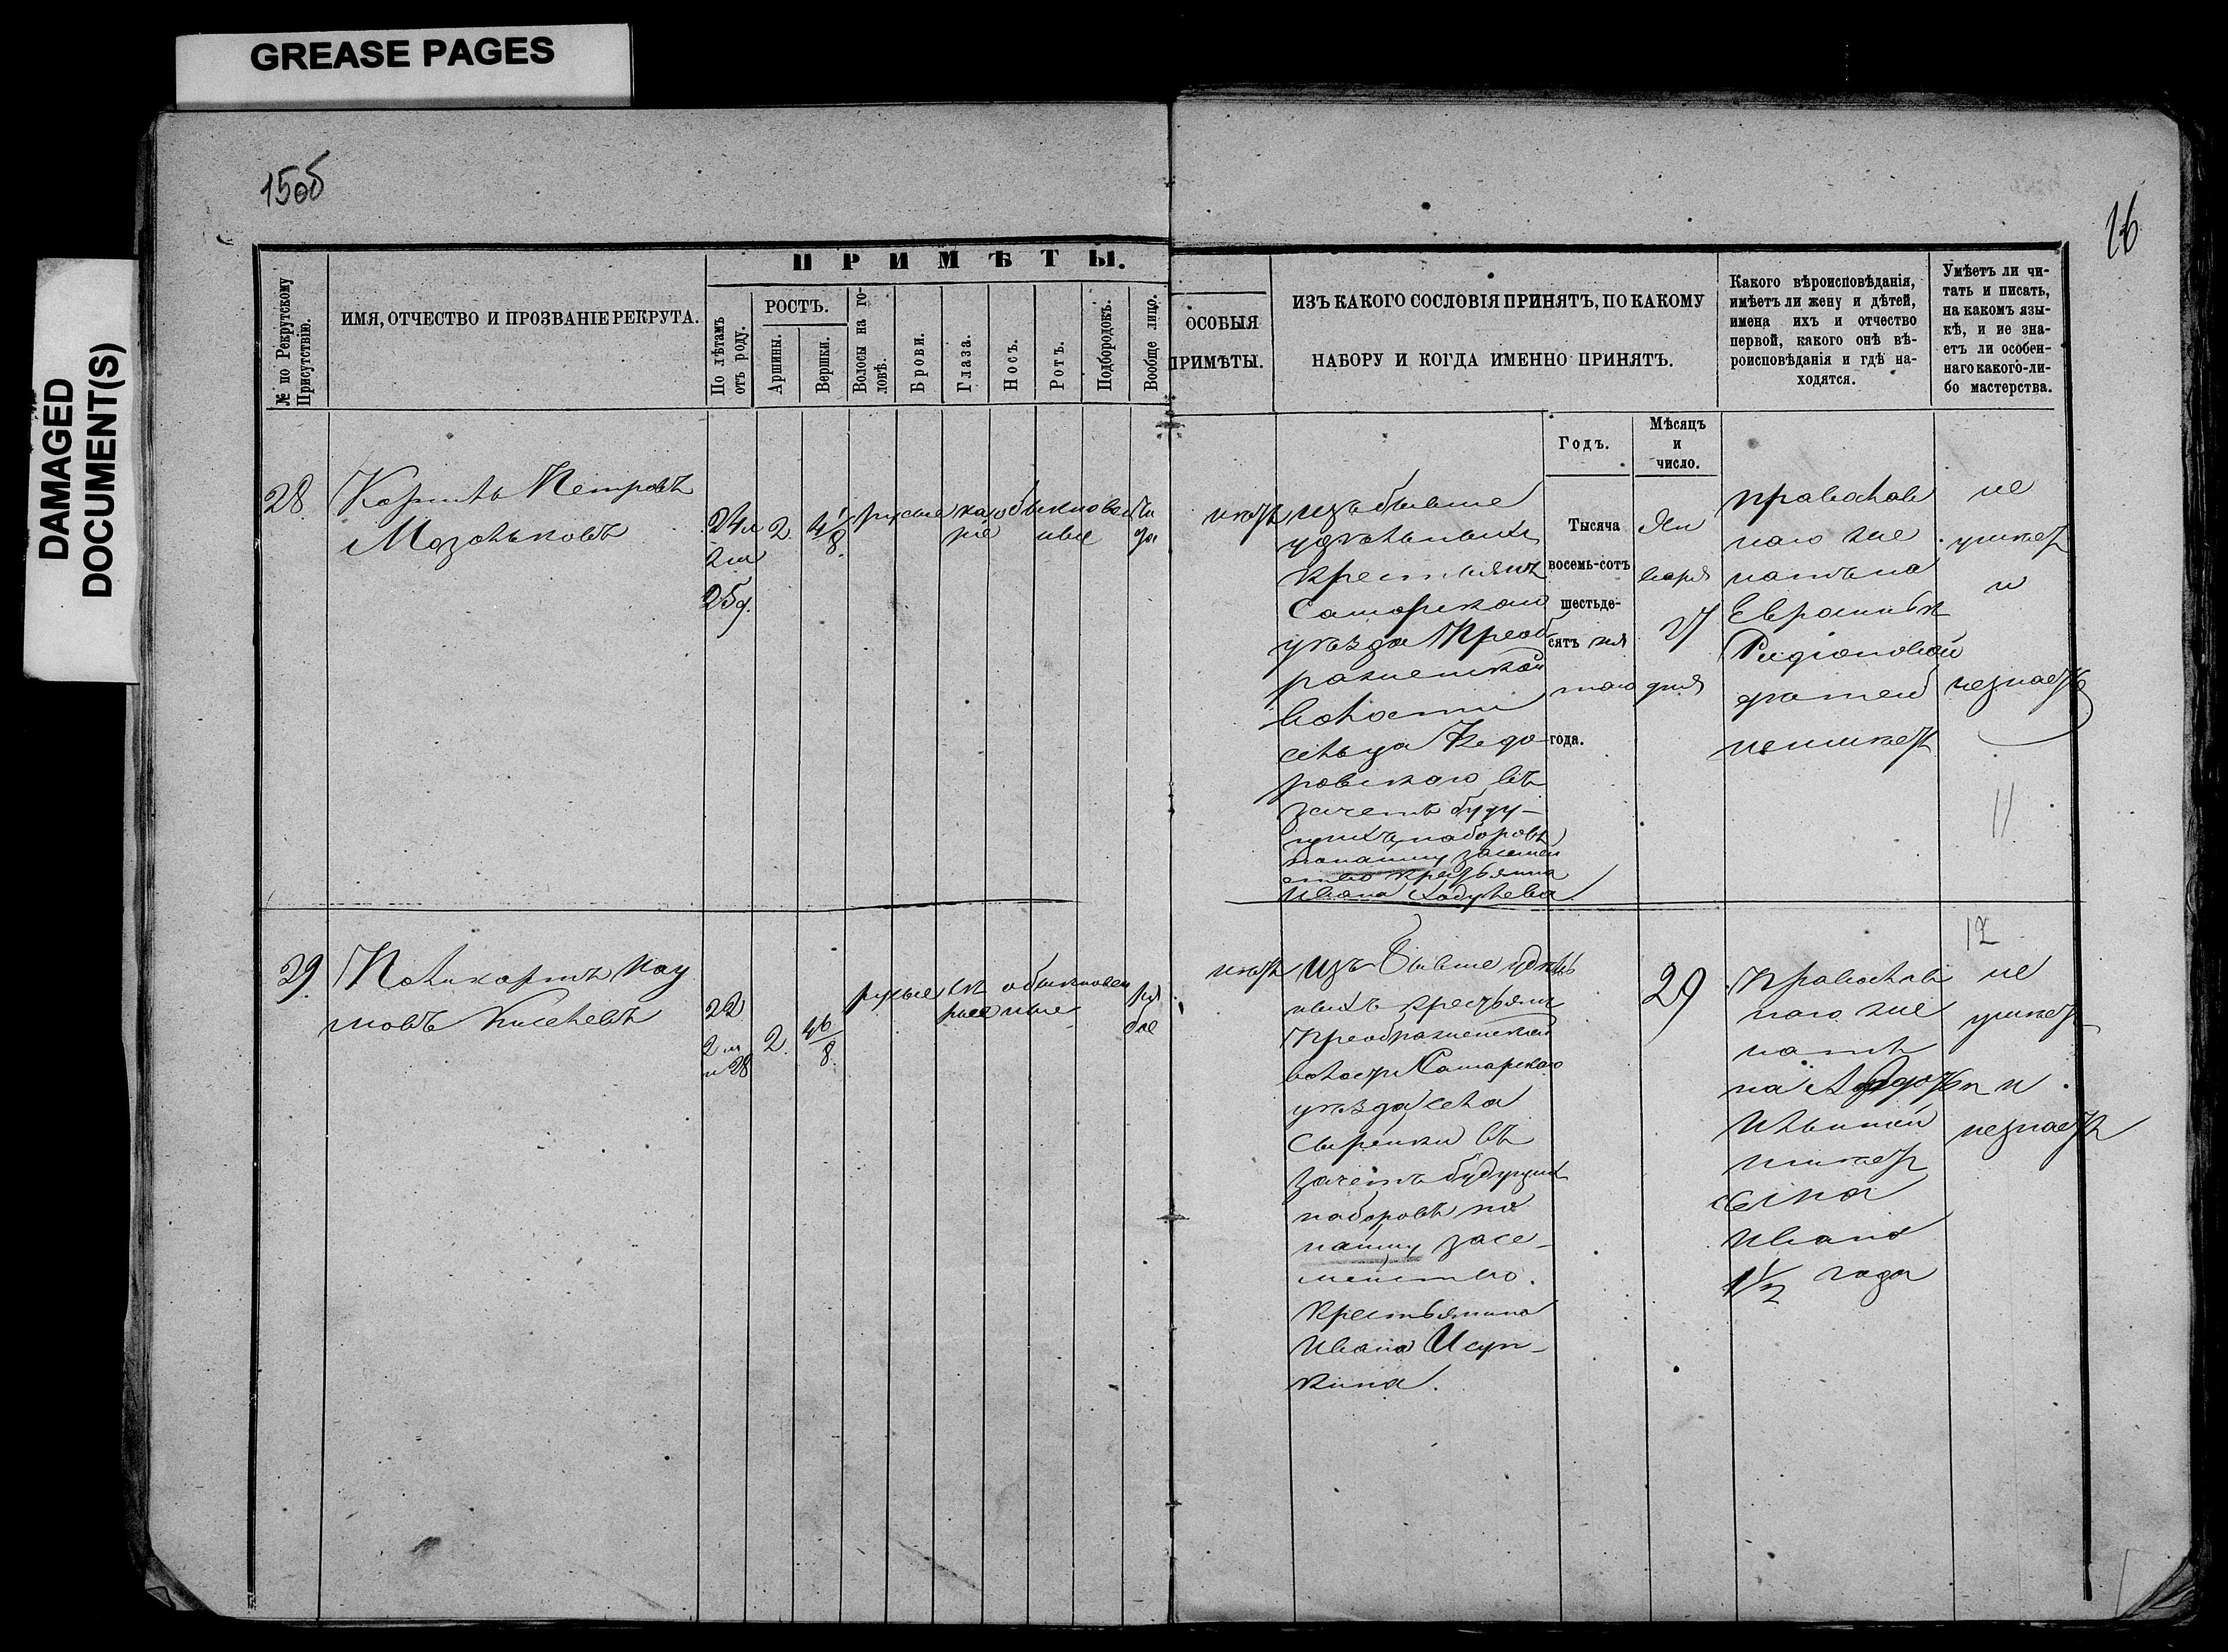 GREASE PAGES
DAMAGED
DOCUMENT(S)
15об
16
№ по Рекрутскому
Присутствію.
ИМЯ, ОТЧЕСТВО И ПРОЗВАНІЕ РЕКРУТА.
ПРИМѢТЫ.
По лѣтамъ
отъ роду.
РОСТЪ.
Аршины.
Вершки.
Волосы на го-
ловѣ.
Брови.
Глаза.
Носъ.
Ротъ.
Подбородокъ.
Вообще лицо.
ОСОБЫЯ
ПРИМѢТЫ.
ИЗЪ КАКОГО СОСЛОВІЯ ПРИНЯТЪ, ПО КАКОМУ
НАБОРУ И КОГДА ИМЕННО ПРИНЯТЪ.
Годъ.
Мѣсяцъ
и
число.
Какого вѣроисповѣданія,
имѣетъ ли жену и дѣтей,
имена ихъ и отчество
первой, какого онѣ вѣ-
роисповѣданія и гдѣ на-
ходятся.
Умѣетъ ли чи-
тать и писать,
на какомъ язы-
кѣ, и не зна-
етъ ли особен-
наго какого-ли-
бо мастерства.
28.
Петровъ
Мазоньковъ
24л
2м
25д.
2
4 1/8
русые
ка
ріе
обыкновен
ные
нѣтъ
изъ бывше
удѣльныхъ
крестьянъ
Самарскаго
уѣзда Преоб
раженской
волости
сельца Ѳедо-
ровскаго въ
зачетъ буду-
щихъ наборовъ
крестьянина
Ивана
Тысяча
восемь-сотъ
шестьде-
сятъ пя
таго
года.
Ян
варя
27
дня
православ
наго же
натъ на
Евросинѣи
Родіоновой
дѣтей
неимѣетъ
не
умѣетъ
и
незнаетъ
11
29.
Поликарпъ Нау
мовъ Киселевъ
22
2 м
и 28
2.
4 6/8
русые
сѣ
рые
обыкновен
ные
ря
бое
нѣтъ
изъ бывше удѣль
ныхъ крестьянъ
Преображенской
волости Самарскаго
уѣзда села
Сырейки въ
зачетъ будущихъ
наборовъ по
найму засе-
мейство
крестьянина
Ивана Исуп-
кина.
29
Православ
наго же
натъ
на
Ильиной
имѣетъ
сына
Ивана
1½ года
12
не
умѣетъ
и
незнаетъ